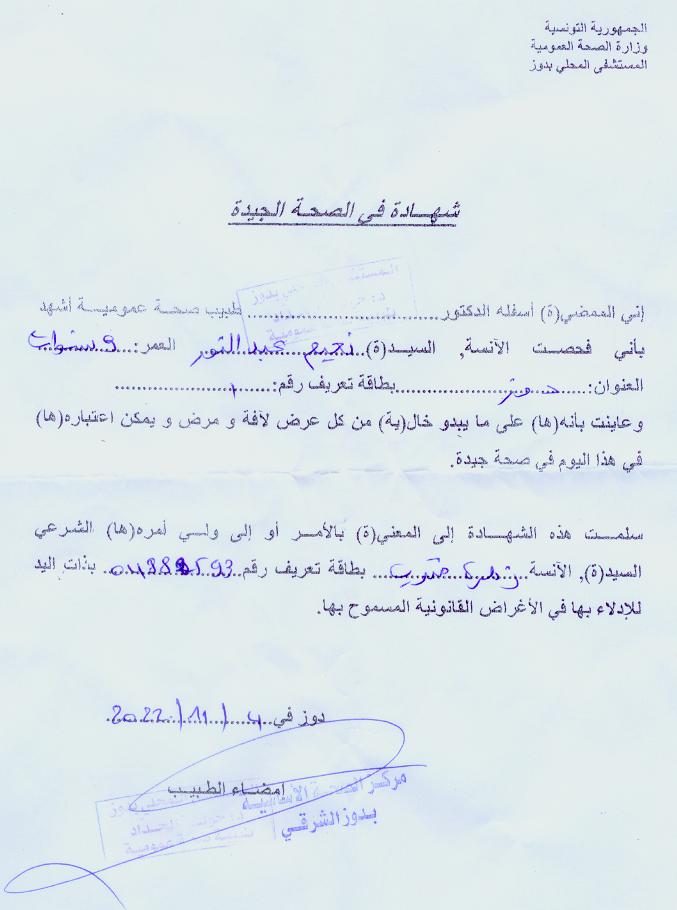 الجمهورية التونسية
وزارة الصحة العمومية
المستشفى المحلي بدوز
شهـادة في الصحة الجيدة
إني الممضي(ة) أسفله الدكتور................................طبيب صحة عموميـة أشهد
بأني فحصـت الآنسة, السيـد(ة)...نعيم عبد النور العمر:...9 سنوات
العنوان:......دوز......بطاقة تعريف رقم:..........................
وعاينت بأنه(ها) على ما يبدو خال(ية) من كل عرض لآفة و مرض و يمكن اعتباره(ها)
في هذا اليوم في صحة جيدة.
سلمـت هذه الشهـادة إلى المعني(ة) بالأمـر أو إلى ولـي أمره(ها) الشرعي
السيد(ة), الآنسة... بطاقة تعريف رقم... بذات اليد
للإدلاء بها في الأغراض القانونية المسموح بها.
دوز في..4../11/..2022.
امضـاء الطبيـب
مركز الصحة الأساسية
بدوز الشرقي